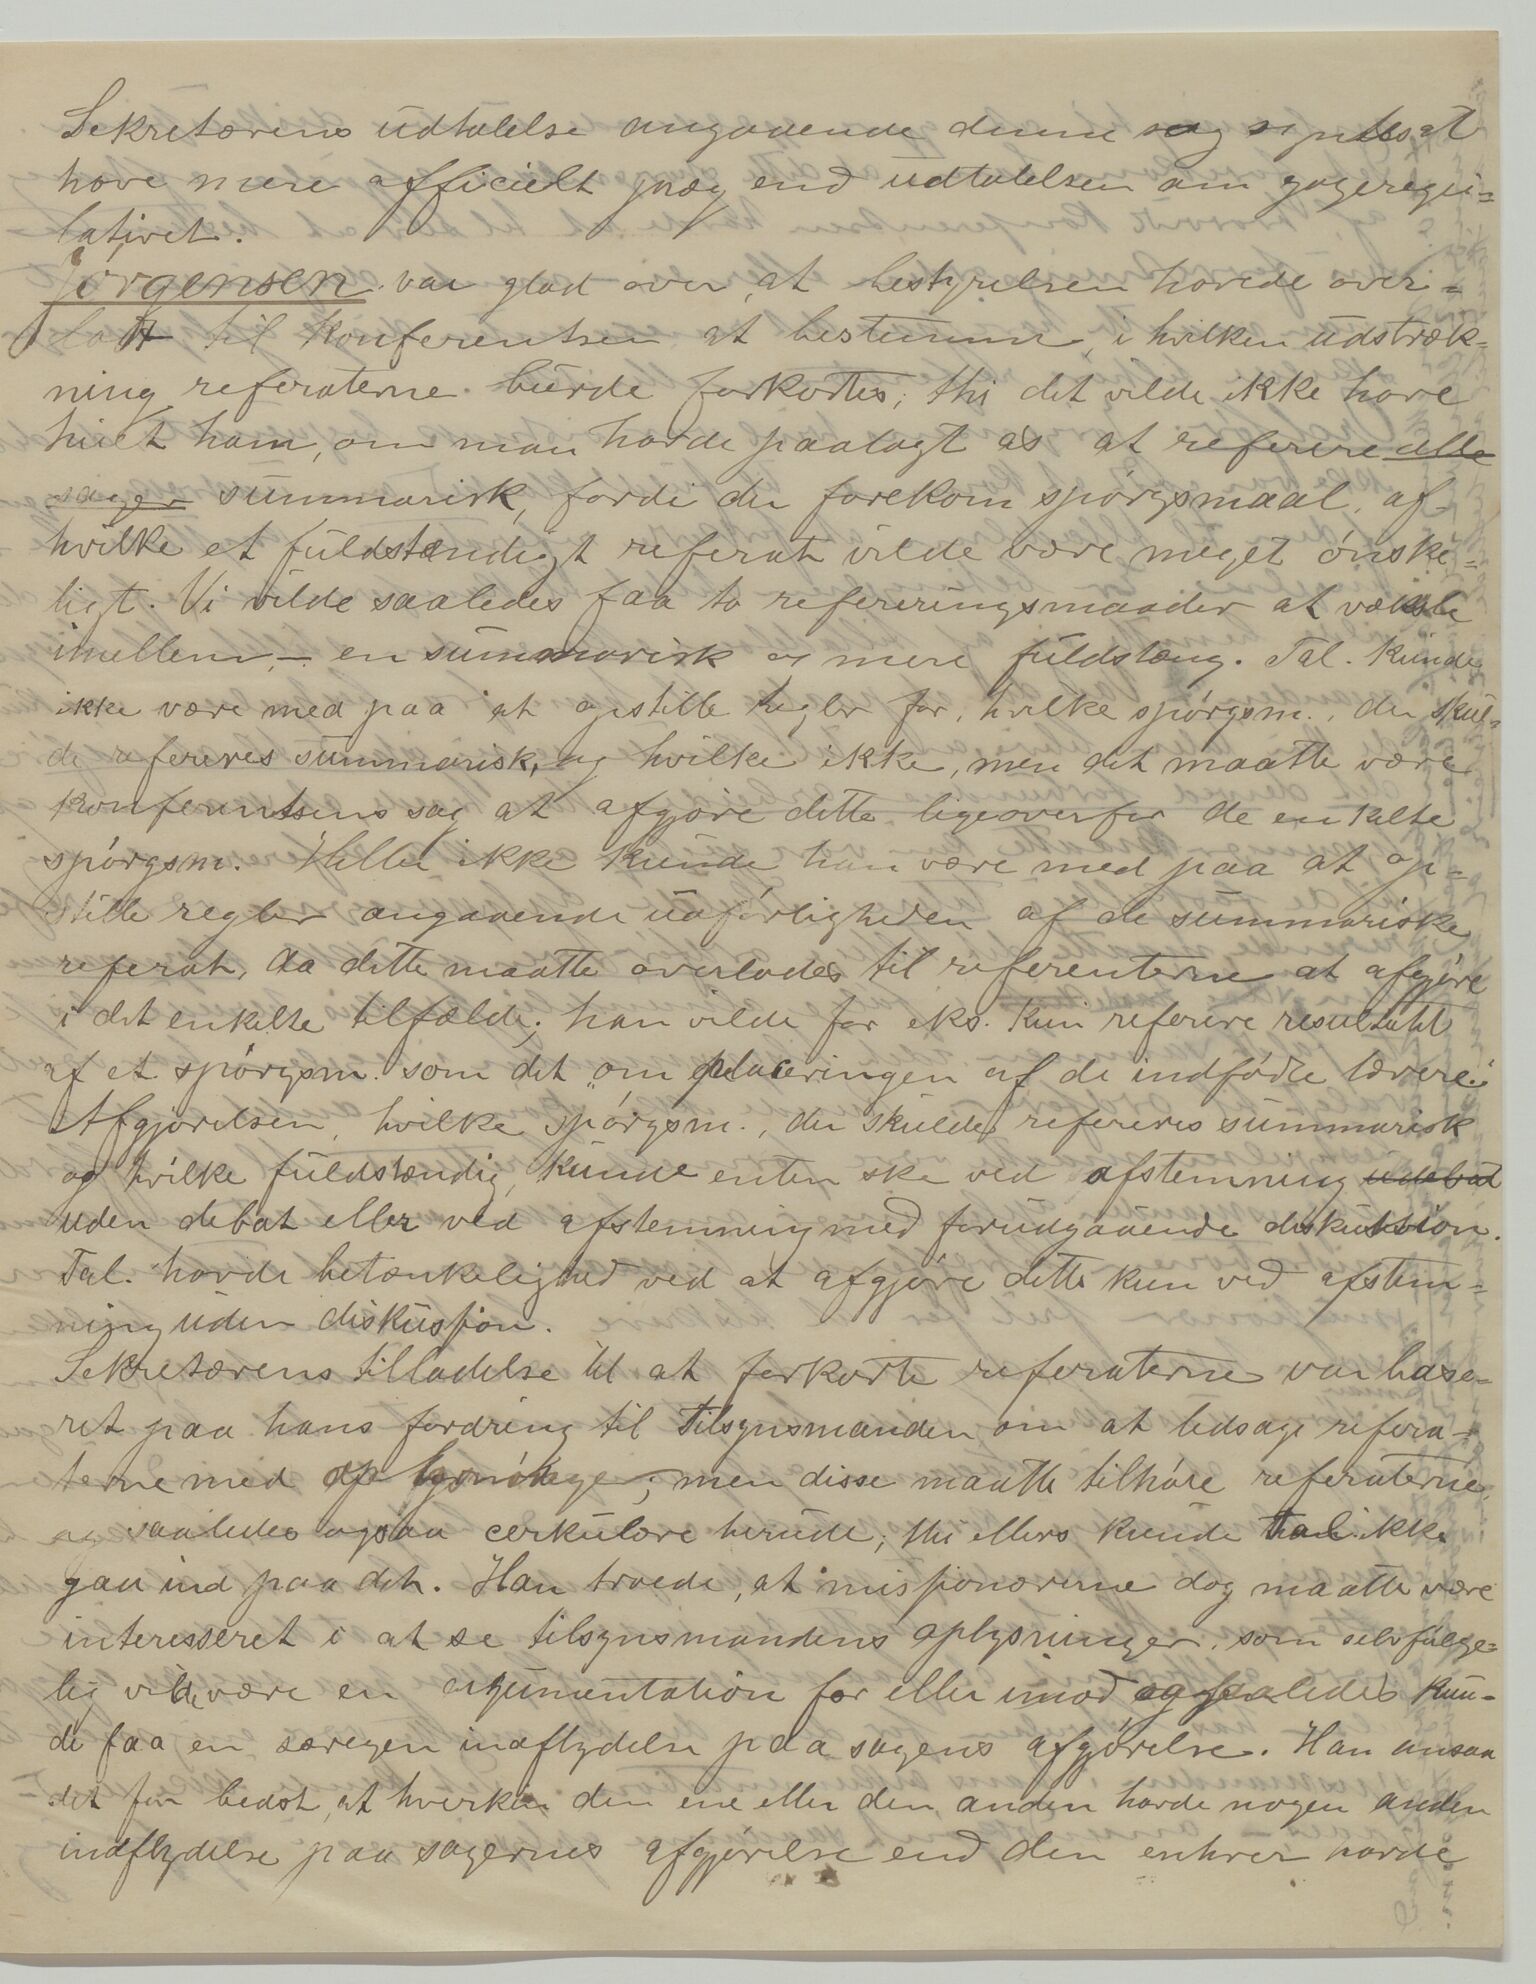 Sekretærens udtalelse angaaende denne sag syntes at
have mere officielt præg end udtalelsen om gageregu-
lativet.
Jørgensen var glad over, at bestyrelsen havde over-
latt til konferentsen at bestemme, i hvilken udstræk-
ning referaterne burde forkortes; thi det vilde ikke have
huet ham, om man havde paalagt os at referere alle
sager summarisk, fordi der forekom spørgsmaal, af
hvilke et fuldstændigt referat vilde være meget ønske-
ligt. Vi vilde saaledes faa to refereringsmaader at veksle
imellem, – en summarisk og mere fuldstæng. Tal. kunde
ikke være med paa at opstille regler for, hvilke spørgsm., der skul-
de refereres summarisk, og hvilke ikke, men det maatte være
konferentsens sag at afgjøre dette ligeoverfor de enkelte
spørgsm. Heller ikke kunde han være med paa at op-
stille regler angaaende udførligheden af de summariske
referat, da dette maatte overlades til referenterne at afgjøre
i det enkelte tilfælde; han vilde for eks. kun referere resultatet
af et spørgsm. som det „om placeringen af de indfødte lærere“
Afgjørelsen, hvilke spørgsm., der skulde refereres summarisk
og hvilke fuldstændig, kunde enten ske ved afstemning udebat
uden debat eller ved afstemning med forudgaaende diskussion.
Tal. havde betænkelighed ved at afgjøre dette kun ved afstem-
ning uden diskussjon.
Sekretærens tilladelse til at forkorte referaterne var base-
ret paa hans fordring til Tilsynsmanden om at ledsage refera-
terne med oplysninger; men disse maatte tilhøre referaterne,
og saaledes ogsaa cerkulere herude; thi ellers kunde tal. ikke
gaa ind paa det. Han troede, at missjonærerne dog maatte være
interesseret i at se tilsynsmandens oplysninger, som selvfølge-
lig vilde være en argumentation for eller imod og saaledes kun-
de faa en særegen indflydelse paa sagens afgjørelse. Han ansaa
det for bedst, at hverken den ene eller den anden havde nogen anden
indflydelse paa sagernes afgjørelse end den enhver havde